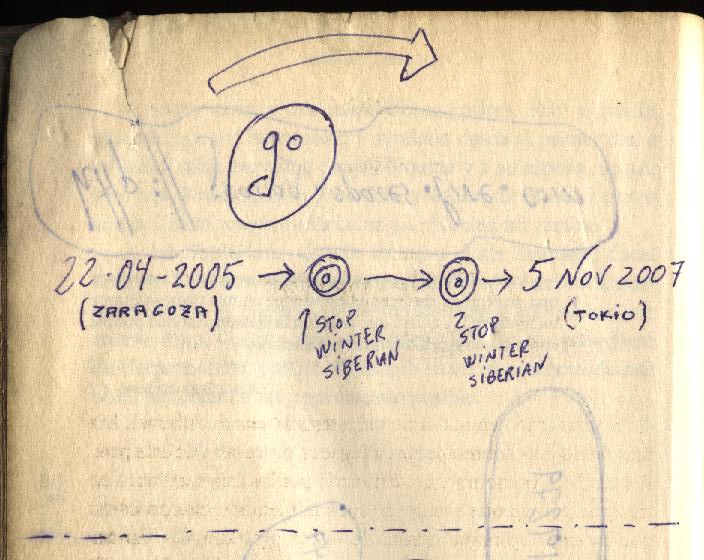 22·04-2005 → → → 5 NOV 2007
(ZARAGOZA)
1 STOP
WINTER
SIBERIAN
2 STOP
WINTER
SIBERIAN
(TOKIO)